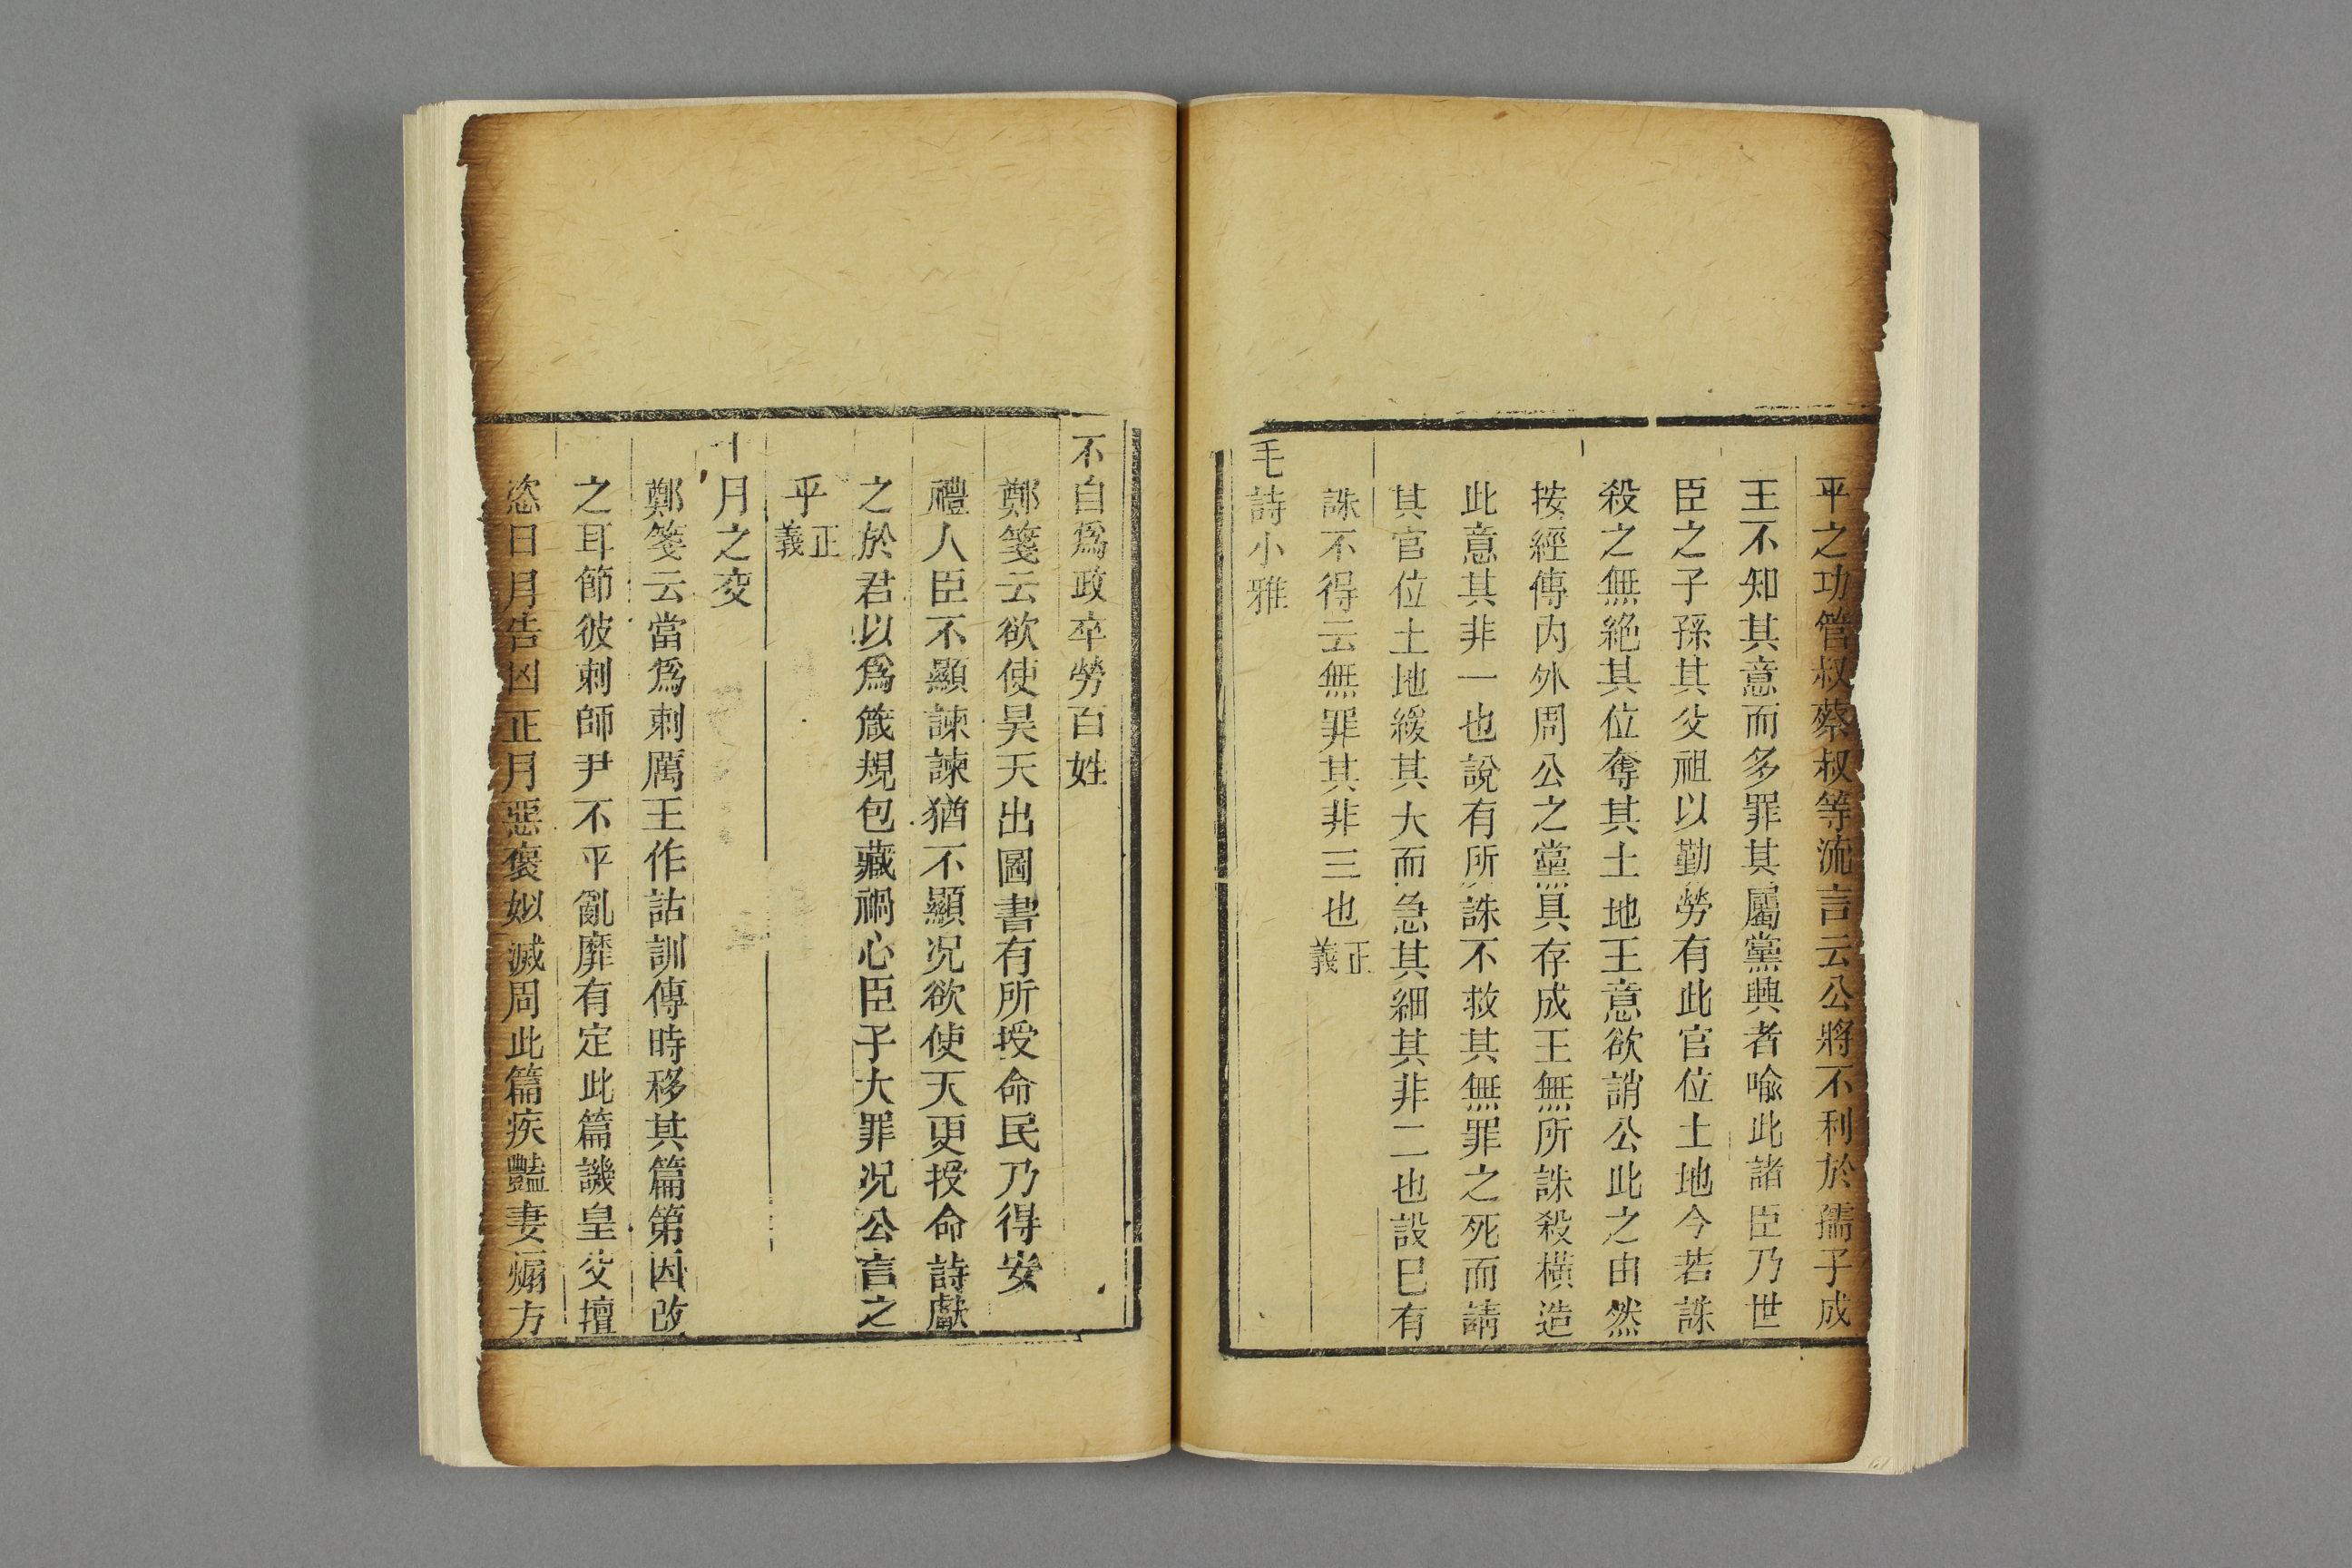 平之功管叔蔡叔等流言云公將不利於孺子成
王不知其意而多罪其屬黨興者喻此諸臣乃世
臣之子孫其父祖以勤勞有此官位土地今若誅
殺之無絕其位奪其土地王意欲誚公此之由然
按經傳内外周公之黨具存成王無所誅殺橫造
此意其非一也說有所誅不救其無罪之死而請
其官位土地緩其大而急其細其非二也設已有
誅不得云無罪其非三也正義
毛詩小雅
不自爲政卒勞百姓
鄭箋云欲使昊天出圖書有所授命民乃得安
禮人臣不顯諫諫猶不顯況欲使天更授命詩獻
之於君以爲箴規包藏禍心臣子大罪況公言之
乎正義
十月之交
鄭箋云當爲刺厲王作詁訓傳時移其篇第因改
之耳節彼刺師尹不平亂靡有定此篇譏皇父擅
恣日月告凶正月惡褒姒滅周此篇疾豔妻煽方